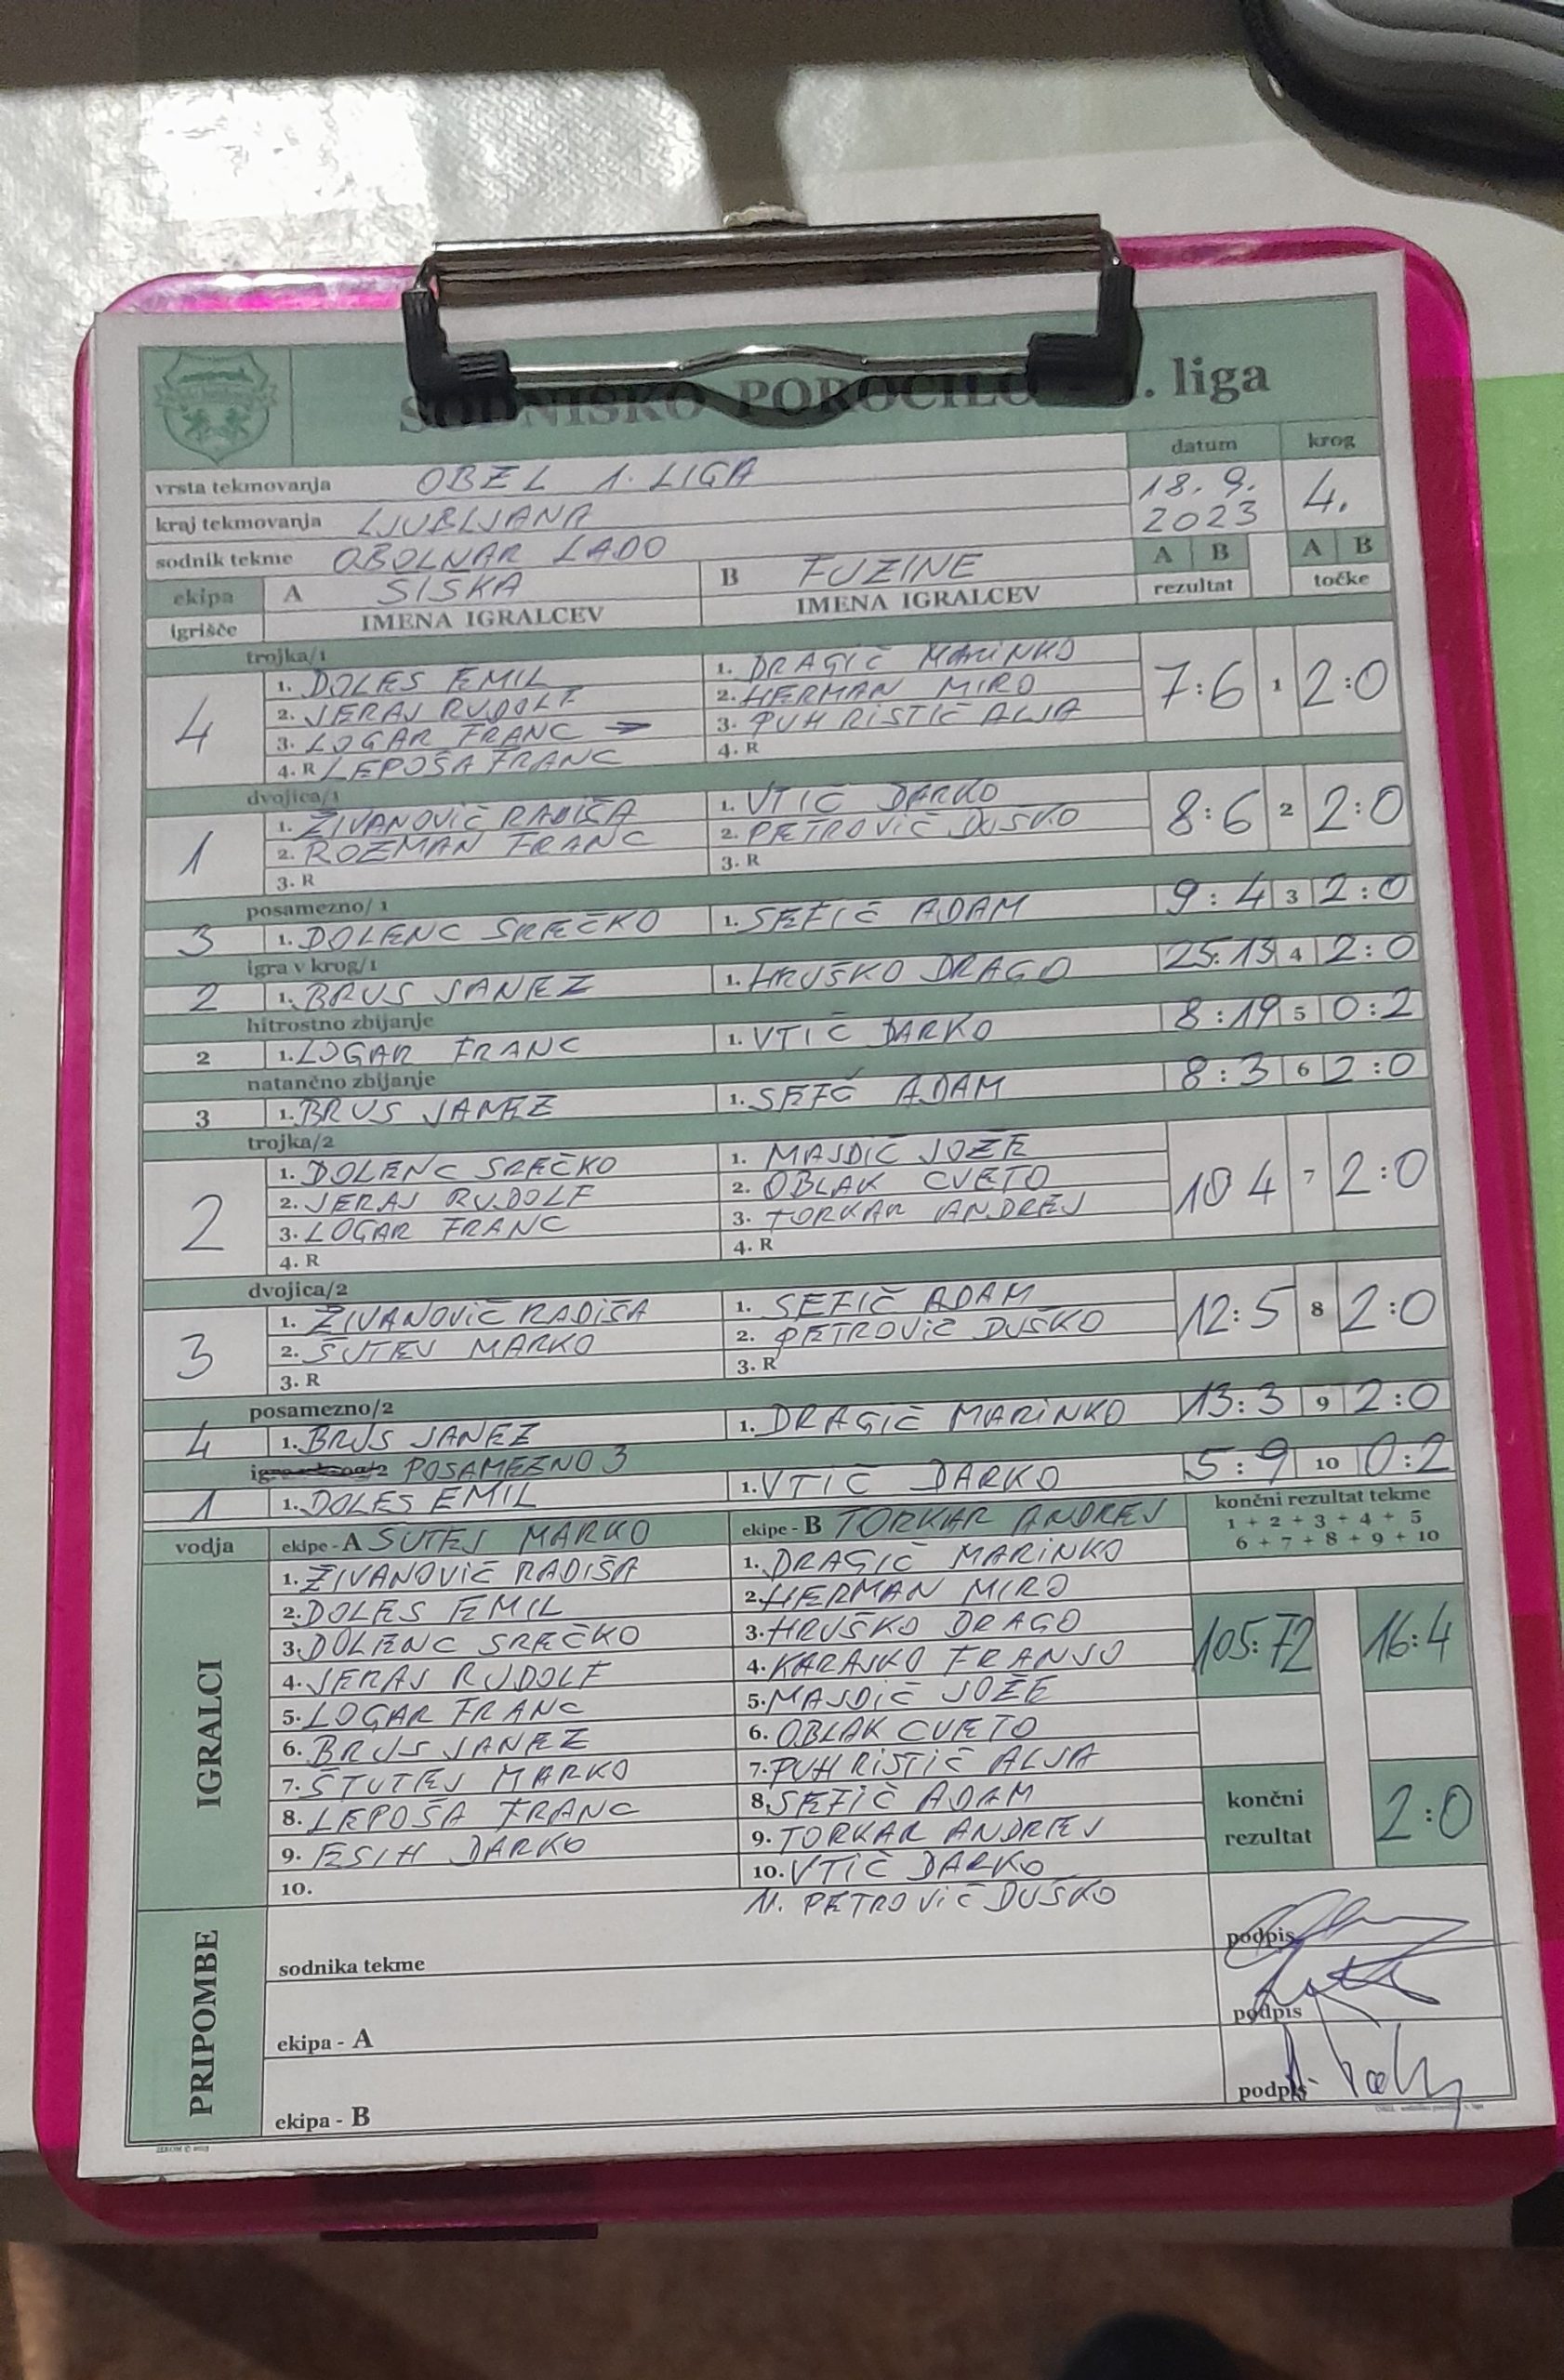 SODNIŠKO POROČILO . liga
datum krog
vrsta tekmovanja OBZL 1. LIGA
18. 9. 2023 4.
kraj tekmovanja LJUBLJANA
sodnik tekme OBOLNAR LADO
A B A B
ekipa A SISKA B FUZINE
rezultat točke
igrišče IMENA IGRALCEV IMENA IGRALCEV
trojka/1
4 7:6 1 2:0
1. DOLES EMIL 1. DRAGIČ MARINKO
2. JERAJ RUDOLF 2. HERMAN MIRO
3. LOGAR FRANC → 3. PUH RISTIČ ALJA
4. R LEPOŠA FRANC 4. R
dvojica/1
1 8:6 2 2:0
1. ŽIVANOVIČ RADIŠA 1. VTIČ DARKO
2. ROZMAN FRANC 2. PETROVIČ DUŠKO
3. R 3. R
posamezno/ 1
3 1. DOLENC SREČKO 1. SEFIČ ADAM 9:4 3 2:0
igra v krog/1
2 1. BRUS JANEZ 1. HRUŠKO DRAGO 25:13 4 2:0
hitrostno zbijanje
2 1. LOGAR FRANC 1. VTIČ DARKO 8:19 5 0:2
natančno zbijanje
3 1. BRUS JANEZ 1. SEFČ ADAM 8:3 6 2:0
trojka/2
2 10 4 7 2:0
1. DOLENC SREČKO 1. MAJDIČ JOŽE
2. JERAJ RUDOLF 2. OBLAK CVETO
3. LOGAR FRANC 3. TORKAR ANDREJ
4. R 4. R
dvojica/2
3 12:5 8 2:0
1. ŽIVANOVIČ RADIŠA 1. SEFIČ ADAM
2. ŠUTEJ MARKO 2. PETROVIČ DUŠKO
3. R 3. R
posamezno/2
4 1. BRUS JANEZ 1. DRAGIČ MARINKO 13:3 9 2:0
igra v krog/2 POSAMEZNO 3
1 1. DOLES EMIL 1. VTIČ DARKO 5:9 10 0:2
vodja ekipe - A ŠUTEJ MARKO ekipe - B TORKAR ANDREJ
končni rezultat tekme
1 + 2 + 3 + 4 + 5
6 + 7 + 8 + 9 + 10
IGRALCI
1. ŽIVANOVIČ RADIŠA 1. DRAGIČ MARINKO
2. DOLES EMIL 2. HERMAN MIRO
3. DOLENC SREČKO 3. HRUŠKO DRAGO
4. JERAJ RUDOLF 4. KARAJKO FRANJO
5. LOGAR FRANC 5. MAJDIČ JOŽE
6. BRUS JANEZ 6. OBLAK CVETO
7. ŠTUTEJ MARKO 7. PUH RISTIČ ALJA
8. LEPOŠA FRANC 8. SEFIČ ADAM
9. ESIH DARKO 9. TORKAR ANDREJ
10. 10. VTIČ DARKO
11. PETROVIČ DUŠKO
105:72 16:4
končni rezultat 2:0
PRIPOMBE
sodnika tekme podpis
ekipa - A podpis
ekipa - B podpis